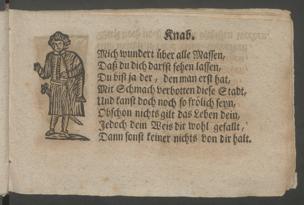 Knab.
Mich wundert über alle Massen,
Daß du dich darfst sehen lassen,
Du bist ja der, den man erst hat,
Mit Schmach verbotten diese Stadt,
Und kanst doch noch so frölich seyn,
Obschon nichts gilt das Leben dein,
Jedoch dein Weis dir wohl gefallt,
Dann sonst keiner nichts von dir halt.